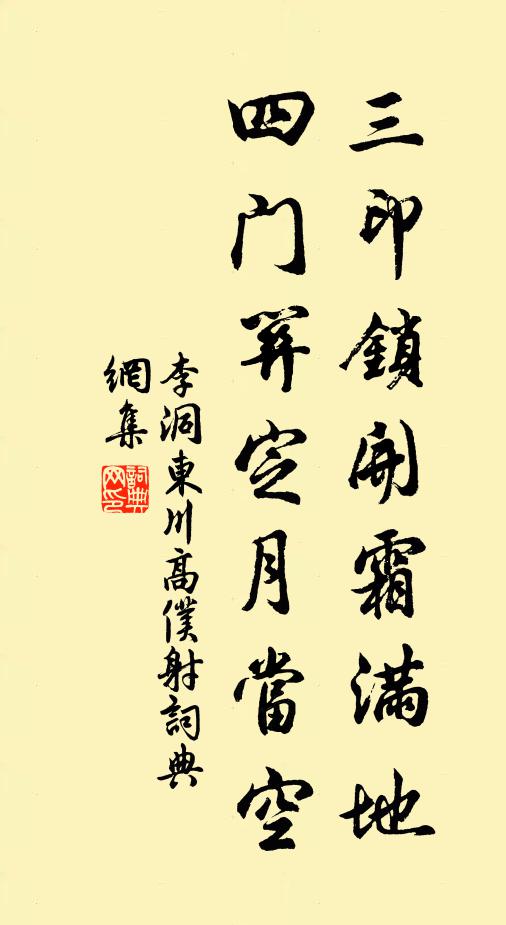 三印鎖開霜滿地
四门算定月當空
李洞東川高僕射詞典
網集
詞典
网印